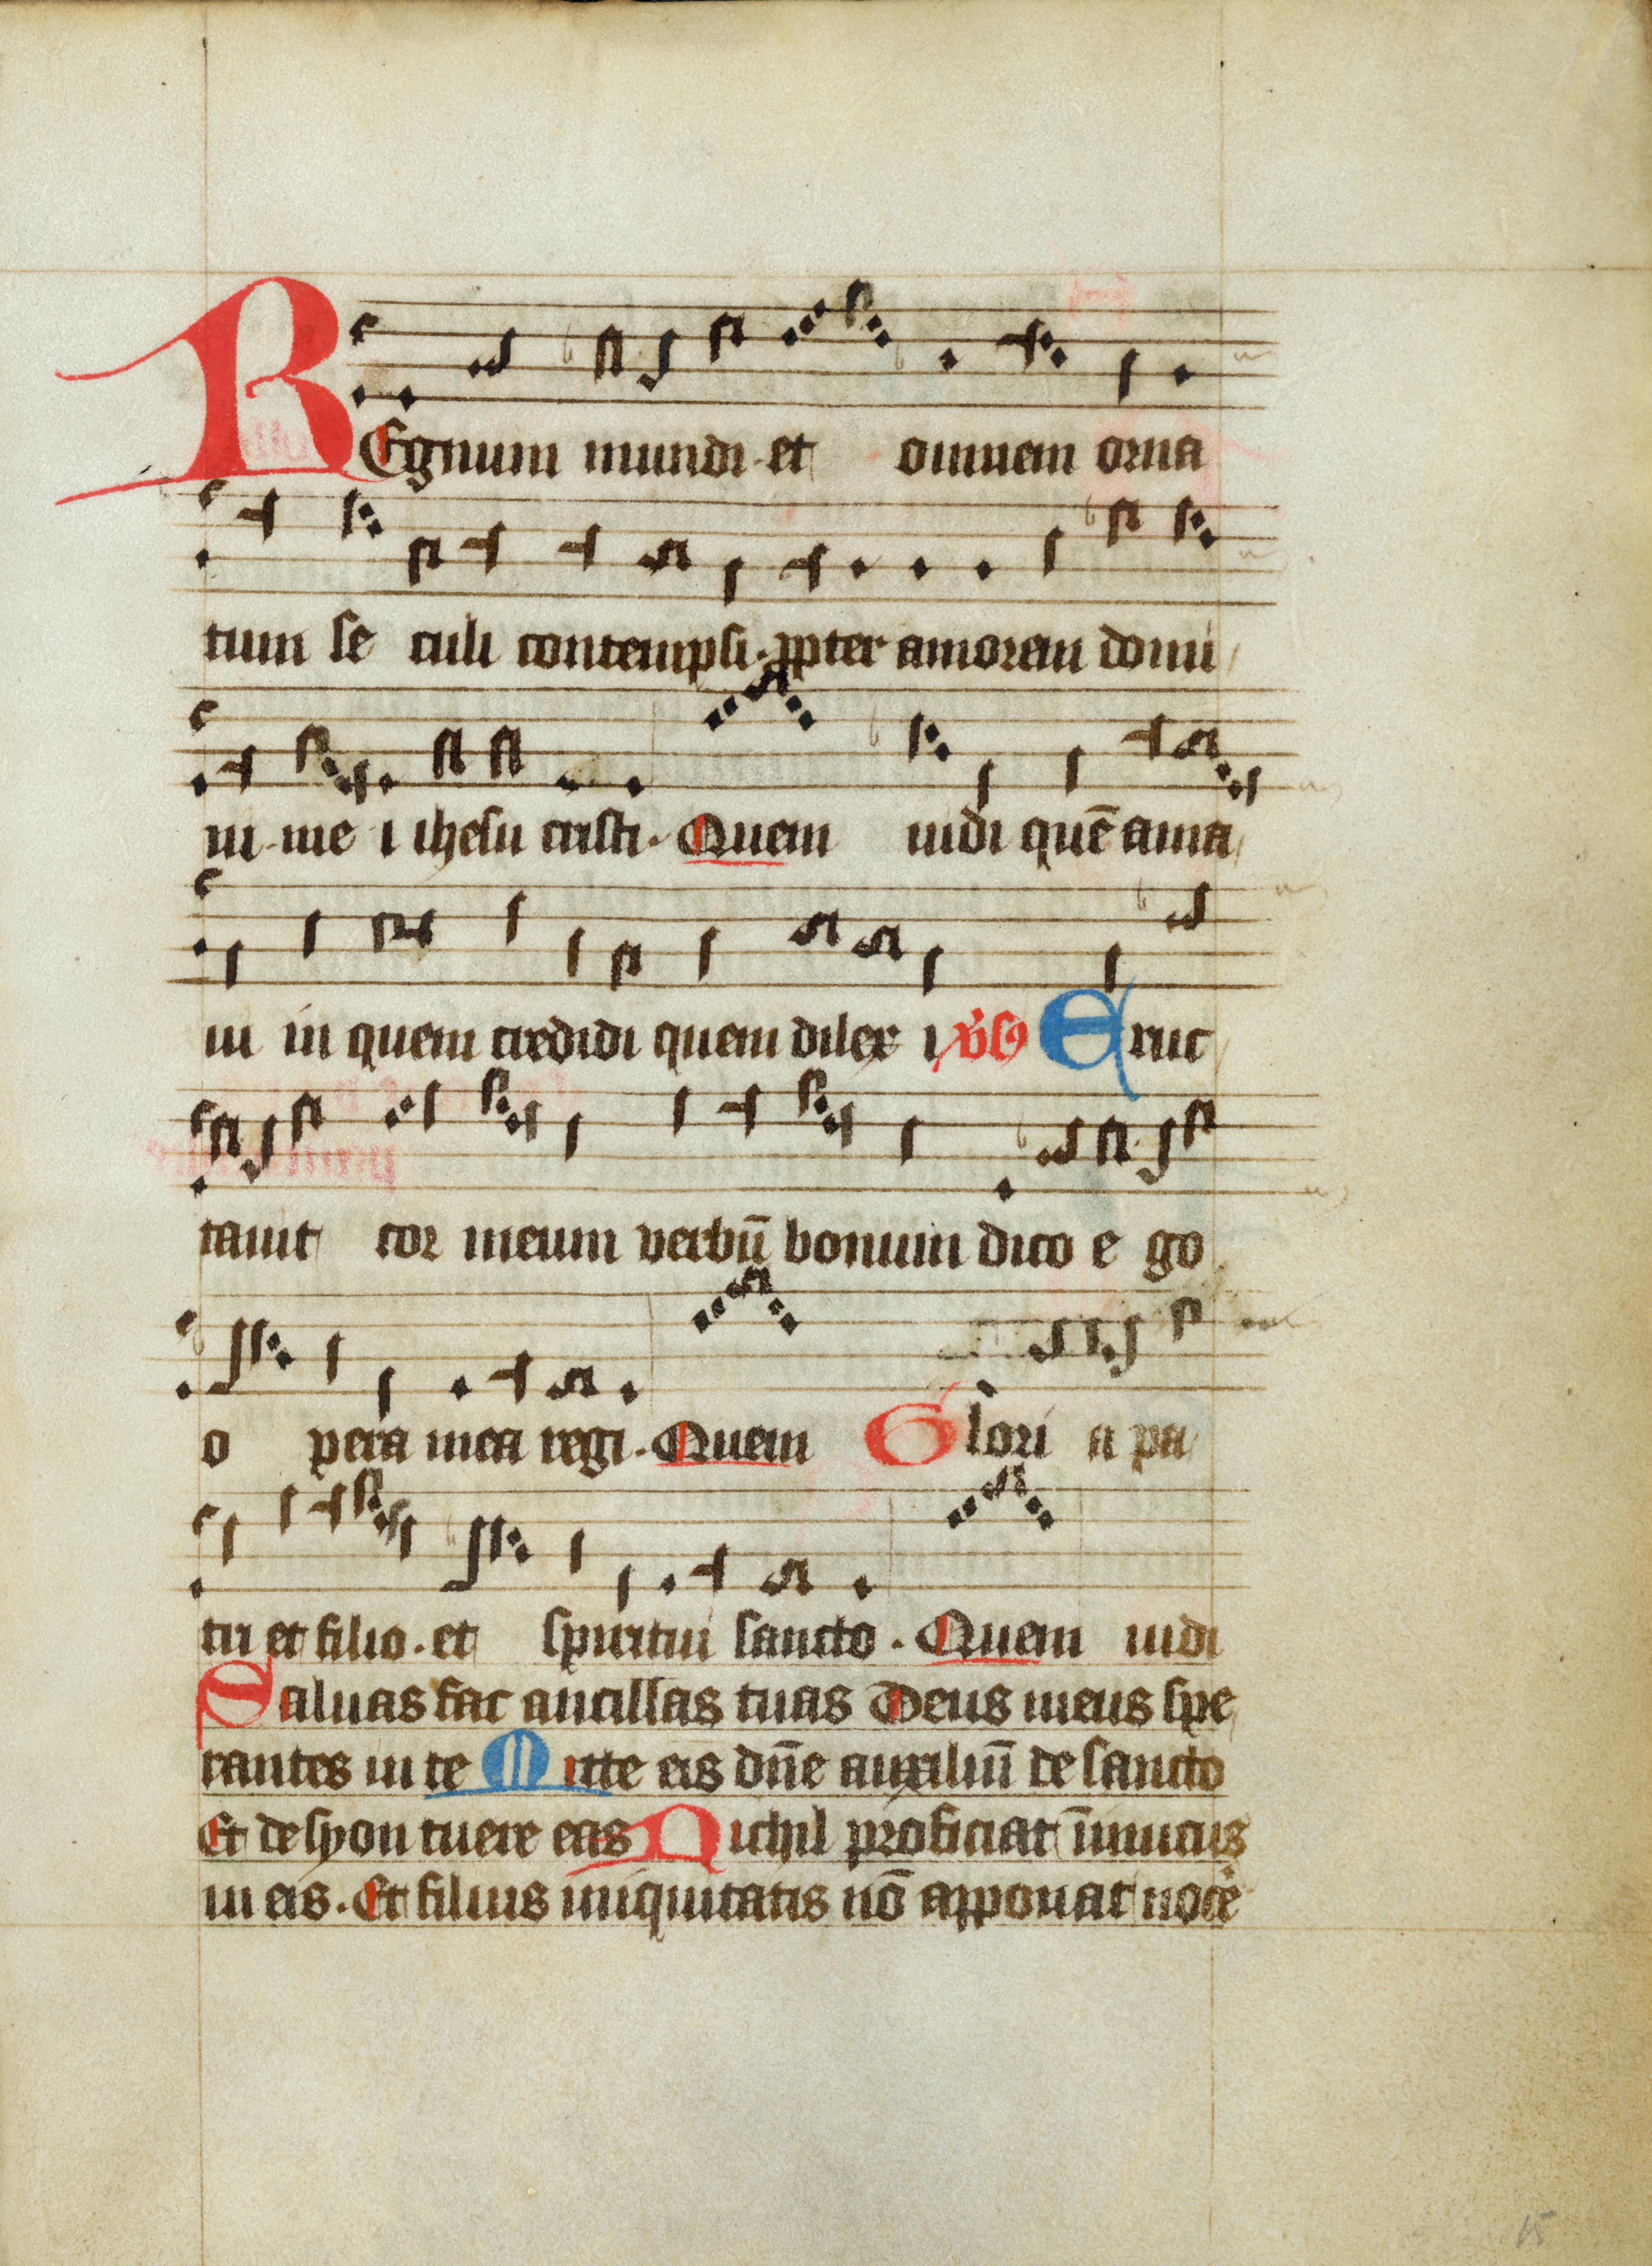 REgnum mundi et omnem orna
tum se culi contempsi. ꝓpter amorem domi
ni me i ihesu cristi. Quem uidi quē ama
ui in quem credidi quem dilex i v̄s Eruc
tauit cor meum verbū bonum dico e go
o pera mea regi. Quem Glori a pa
tri et filio. et spiritui sancto. Quem uidi
Saluas fac ancillas tuas Deus meus spe
rantes in te Mitte eis dn̄e auxiliū de sancto
Et de syon tuere eas Nichil proficiat īnimicus
in eis. Et filius iniquitatis nō apponat noce
15